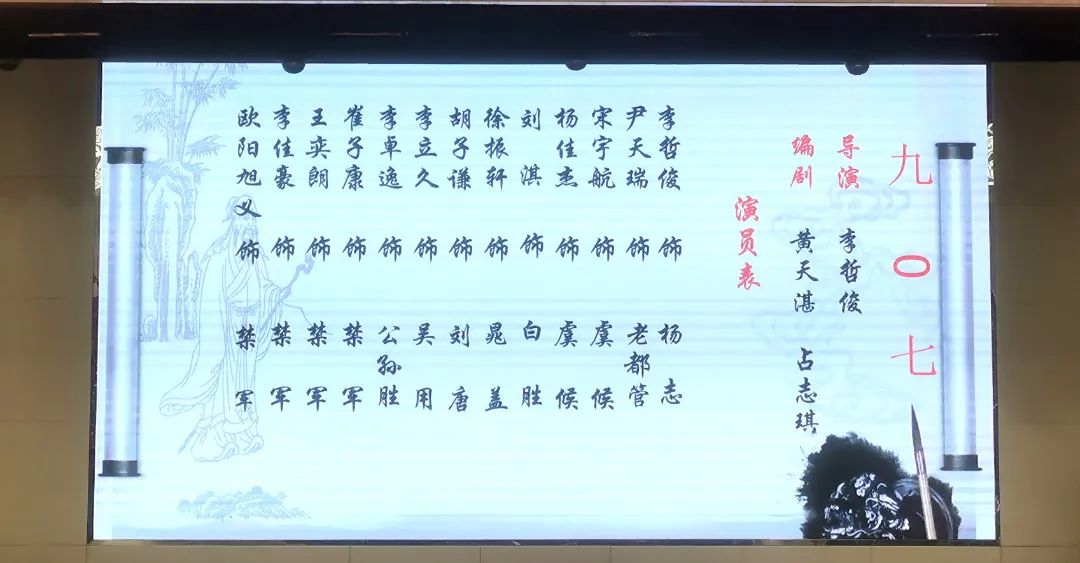 九〇七
导演 李哲俊
编剧 黄天湛 占志琪
演员表
李哲俊 饰 杨志
尹天瑞 饰 老都管
宋宇航 饰 虞候
杨佳杰 饰 虞候
刘淇 饰 白胜
徐振轩 饰 晁盖
胡子谦 饰 刘唐
李立久 饰 吴用
李卓逸 饰 公孙胜
崔子康 饰 禁军
王奕朗 饰 禁军
李佳豪 饰 禁军
欧阳旭义 饰 禁军